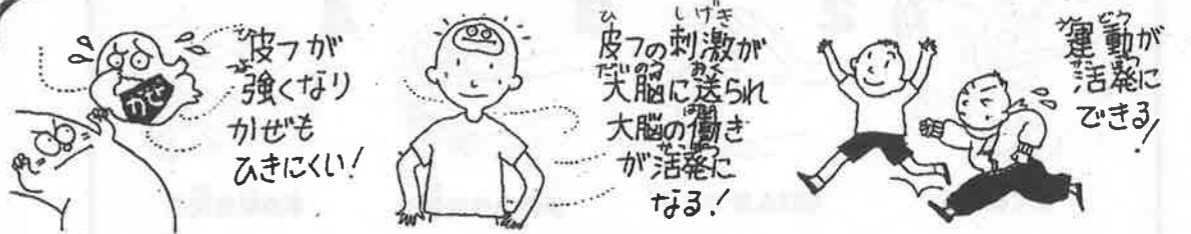 かぜ
皮フが
強くなり
かぜも
ひきにくい!
皮フの刺激が
大脳に送られ
大脳の働き
が活発に
なる!
運動が
活発に
できる!